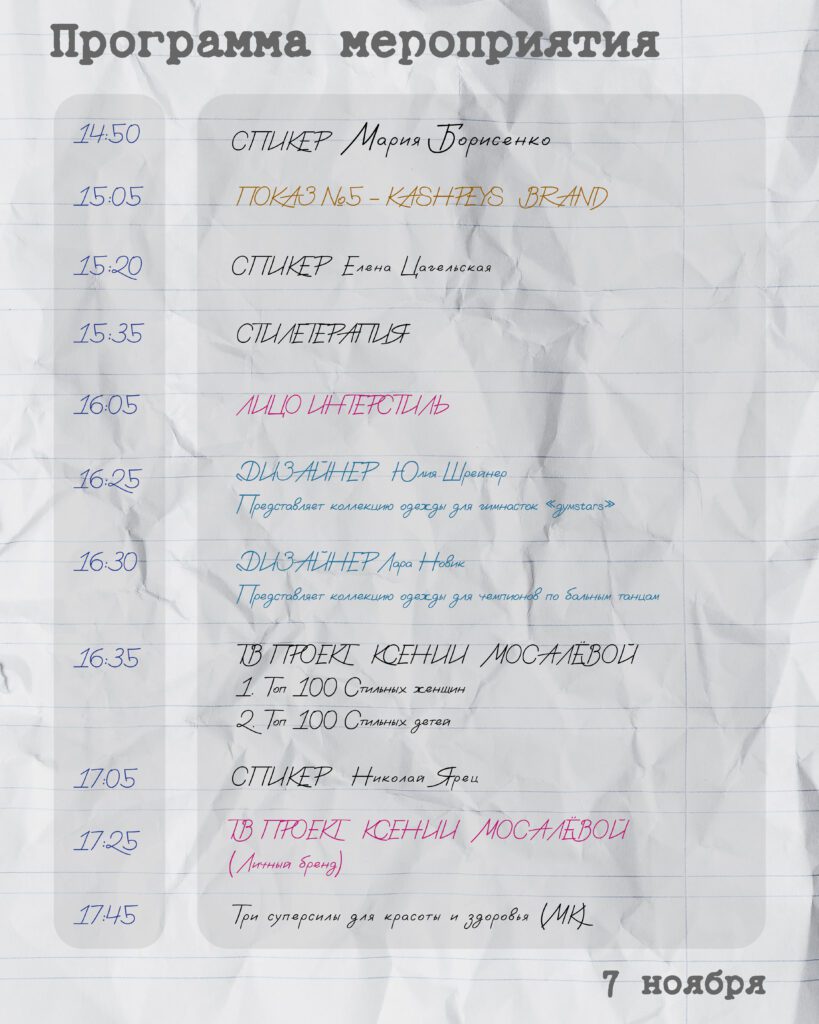 Программа мероприятия
14:50 СПИКЕР Мария Борисенко
15:05 ПОКАЗ №5 – KASHPEYS BRAND
15:20 СПИКЕР Елена Цагельская
15:35 СТИЛЕТЕРАПИЯ
16:05 ЛИЦО ИНТЕРСТИЛЬ
16:25 ДИЗАЙНЕР Юлия Шрейнер
Представляет коллекцию одежды для гимнасток «gymstars»
16:30 ДИЗАЙНЕР Лара Новик
Представляет коллекцию одежды для чемпионов по бальным танцам
16:35 ТВ ПРОЕКТ КСЕНИИ МОСАЛЁВОЙ
1. Топ 100 Стильных женщин
2. Топ 100 Стильных детей
17:05 СПИКЕР Николай Ярец
17:25 ТВ ПРОЕКТ КСЕНИИ МОСАЛЁВОЙ
(Личный бренд)
17:45 Три суперсилы для красоты и здоровья (МК)
7 ноября